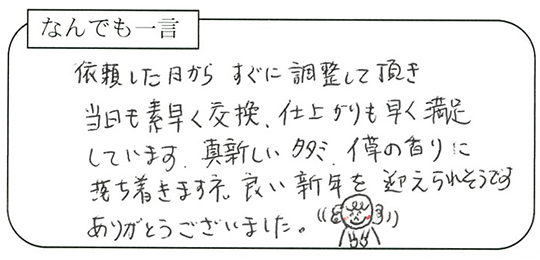 なんでも一言
依頼した日から すぐに 調整して頂き
当日も素早く交換、仕上がりも早く満足
しています。真新しいタタミ、イ草の香りに
落ち着きますネ。良い新年を迎えられそうです
ありがとうございました。